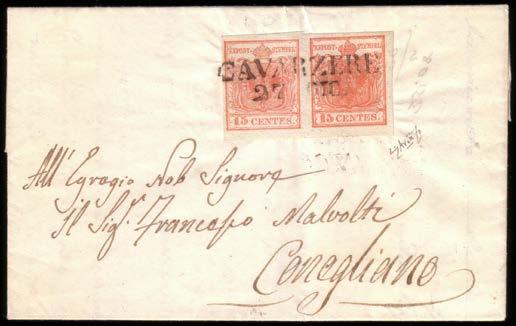 KKPOST-STEMPEL KKPOST-STEMPEL
CAVARZERE
27 GIU.
15 CENTES. 15 CENTES.
All' Egregio Nob Signore
Il Sig.r Francesco Malvolti
Conegliano